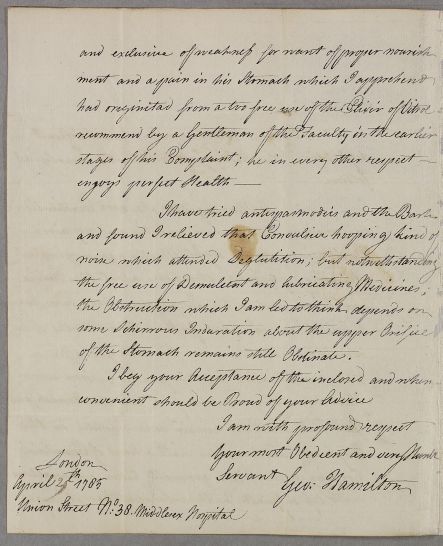 and exclusive of weakness for want of proper nourish
ment and a pain in his Stomach which I apprehend
had originated from a too free use of the Elixir of Vitriol
recommend by a Gentleman of the Faculty in the earlier
stages of his Complaint; he in every other respect —
enjoys perfect Health —
I have tried antispasmodics and the Barke
and found I relieved that Convulsive hooping kind of
noise which attended Deglutition; but notwithstanding
the free use of Demulcent and lubricating Medicines;
the Obstruction which I am led to think depends on
some Schirrous Induration about the upper Orifice
of the Stomach remains still Obstinate.
I beg your Acceptance of the inclosed and when
convenient should be Proud of your Advice
I am with profound respect
Your most Obedient and very Humble
Servant Geo: Hamilton
London
April 1785
Union Street No. 38. Middlesex Hospital